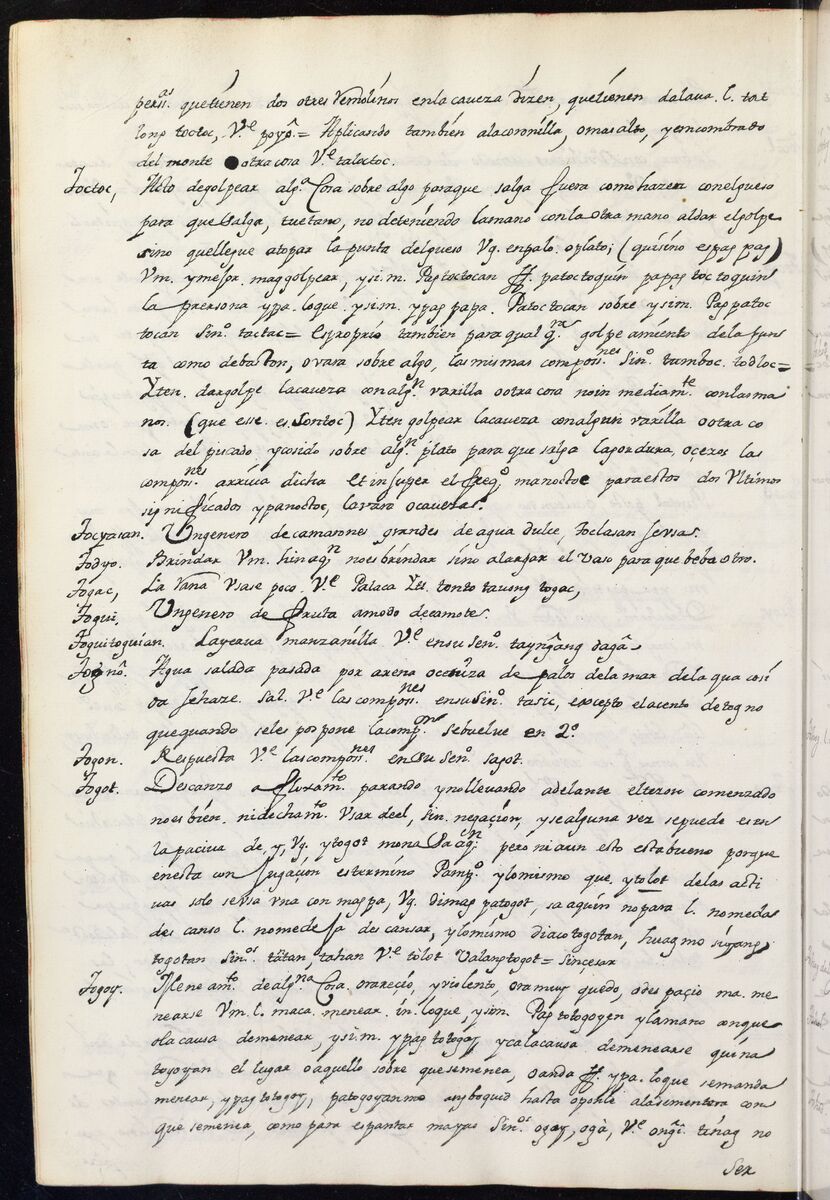 perss.as que tienen dos otres Vemolinos enla caveza dizen, que tienen dalaua. l. tat
long toctoc, V.e poyo.= Aplicando tambien ala coronilla, o mas alto, y encumbrado
del monte otra cosa V.e taloctoc.
Toctoc, Acto de golpear alg.a Cosa sobre algo para que salga fuera como hazen con el gueso
para que salga, tuetano, no deteniendo la mano con la otra mano al dar el golpe
sino que llegue a topar la punta del gueso Vg. en palo. o plato; (quisino es pag pag)
Vm. y mejor. mag golpear, y si. m. Pag toctocan ff. patoctoquin papag toctoquin
la persona ypa. loque. y sim. ypag papa. Patoctocan sobre y sim. Pag patoc
tocan Sin.o tactac= Es proprio tambien para qual q.ra golpeamiento de la pun
ta como de baston, o vara sobre algo, las mismas compos.nes Sin.o tumboc. todloc=
Yten. dar golpe la caveza con alg.n varilla o otra cosa no inmediam.te con las ma
nos. (que esse. es. Sontoc) Yten golpear la caveza con algun varilla o otra co
sa del pescado y cosido sobre alg.n plato para que salga la gordura, o çesos las
compos.nes arriva dicha et insuper el freq.o manoctoc para estos dos Vltimos
significados y panoctoc, la vara o caveras.
Tocyasan. Un genero de camarones grandes de agua dulce, Toclasan Servas.
Todyo. Brindar Vm. hinag.n no es brindar sino alargar el Vaso para que beba otro.
Togac, La rana Vsase poco. V.e Palaca Yts. tonto tauong togac,
Togui. Un genero de fruta amodo de camotes.
Toguitoguian. La yerua manzanilla V.e en su Sen.o
Togno. Agua salada pasada por arena o ceniza de palos de la mar de la qua cosi
da se haze. Sal. V.e las compos.nes en su Sin.o tasic, excepto el acento de togno
que quando se les pospone la comp.on se buelue en 2.o
Togon. Respuesta V.e las compos.nes en su Sen.o sagot.
Togot. Descanzo parando y no llevando adelante el teson comenzado
no es bien. ni de cham.to Vsar deel, sin. negacion, y se alguna vez se puede es en
la paciva de, y, Vg. ytogot mona pero ni aun esto esta bueno porque
en esta conjugacion es termino Pamp.o y lo mismo que. ytolot de las acti
uas solo se vsa vna con mappa, Vg. dimag patogot, sa aquin no para l. no me da
des canso l. no me deja descansar, y lo mismo di aco togotan, huag mo siyang
togotan Sin.os tātan, tahan V.e tolot Valang togot= sin çesar
Togoy. Meneam.to de alg.na Cosa. ora recio, y violento, ora muy quedo, o de spaçio ma. me
nearse Vm. l. maca. menear. in. loque y sim. Pag totogoyen y la mano con que
o la causa de menear, y si. m. ypag totogoy yca la causa de menearse quina
togoyan el lugar o aquello sobre que se menea, o anda ff. ypa. loque se manda
menear, ypag totogoy, patogoyanmo ang boquid hasta o pohle ala sementera con
que se menea, como para espantar mayas Sin.os ogoy, oga, V.e tinag no
Ser